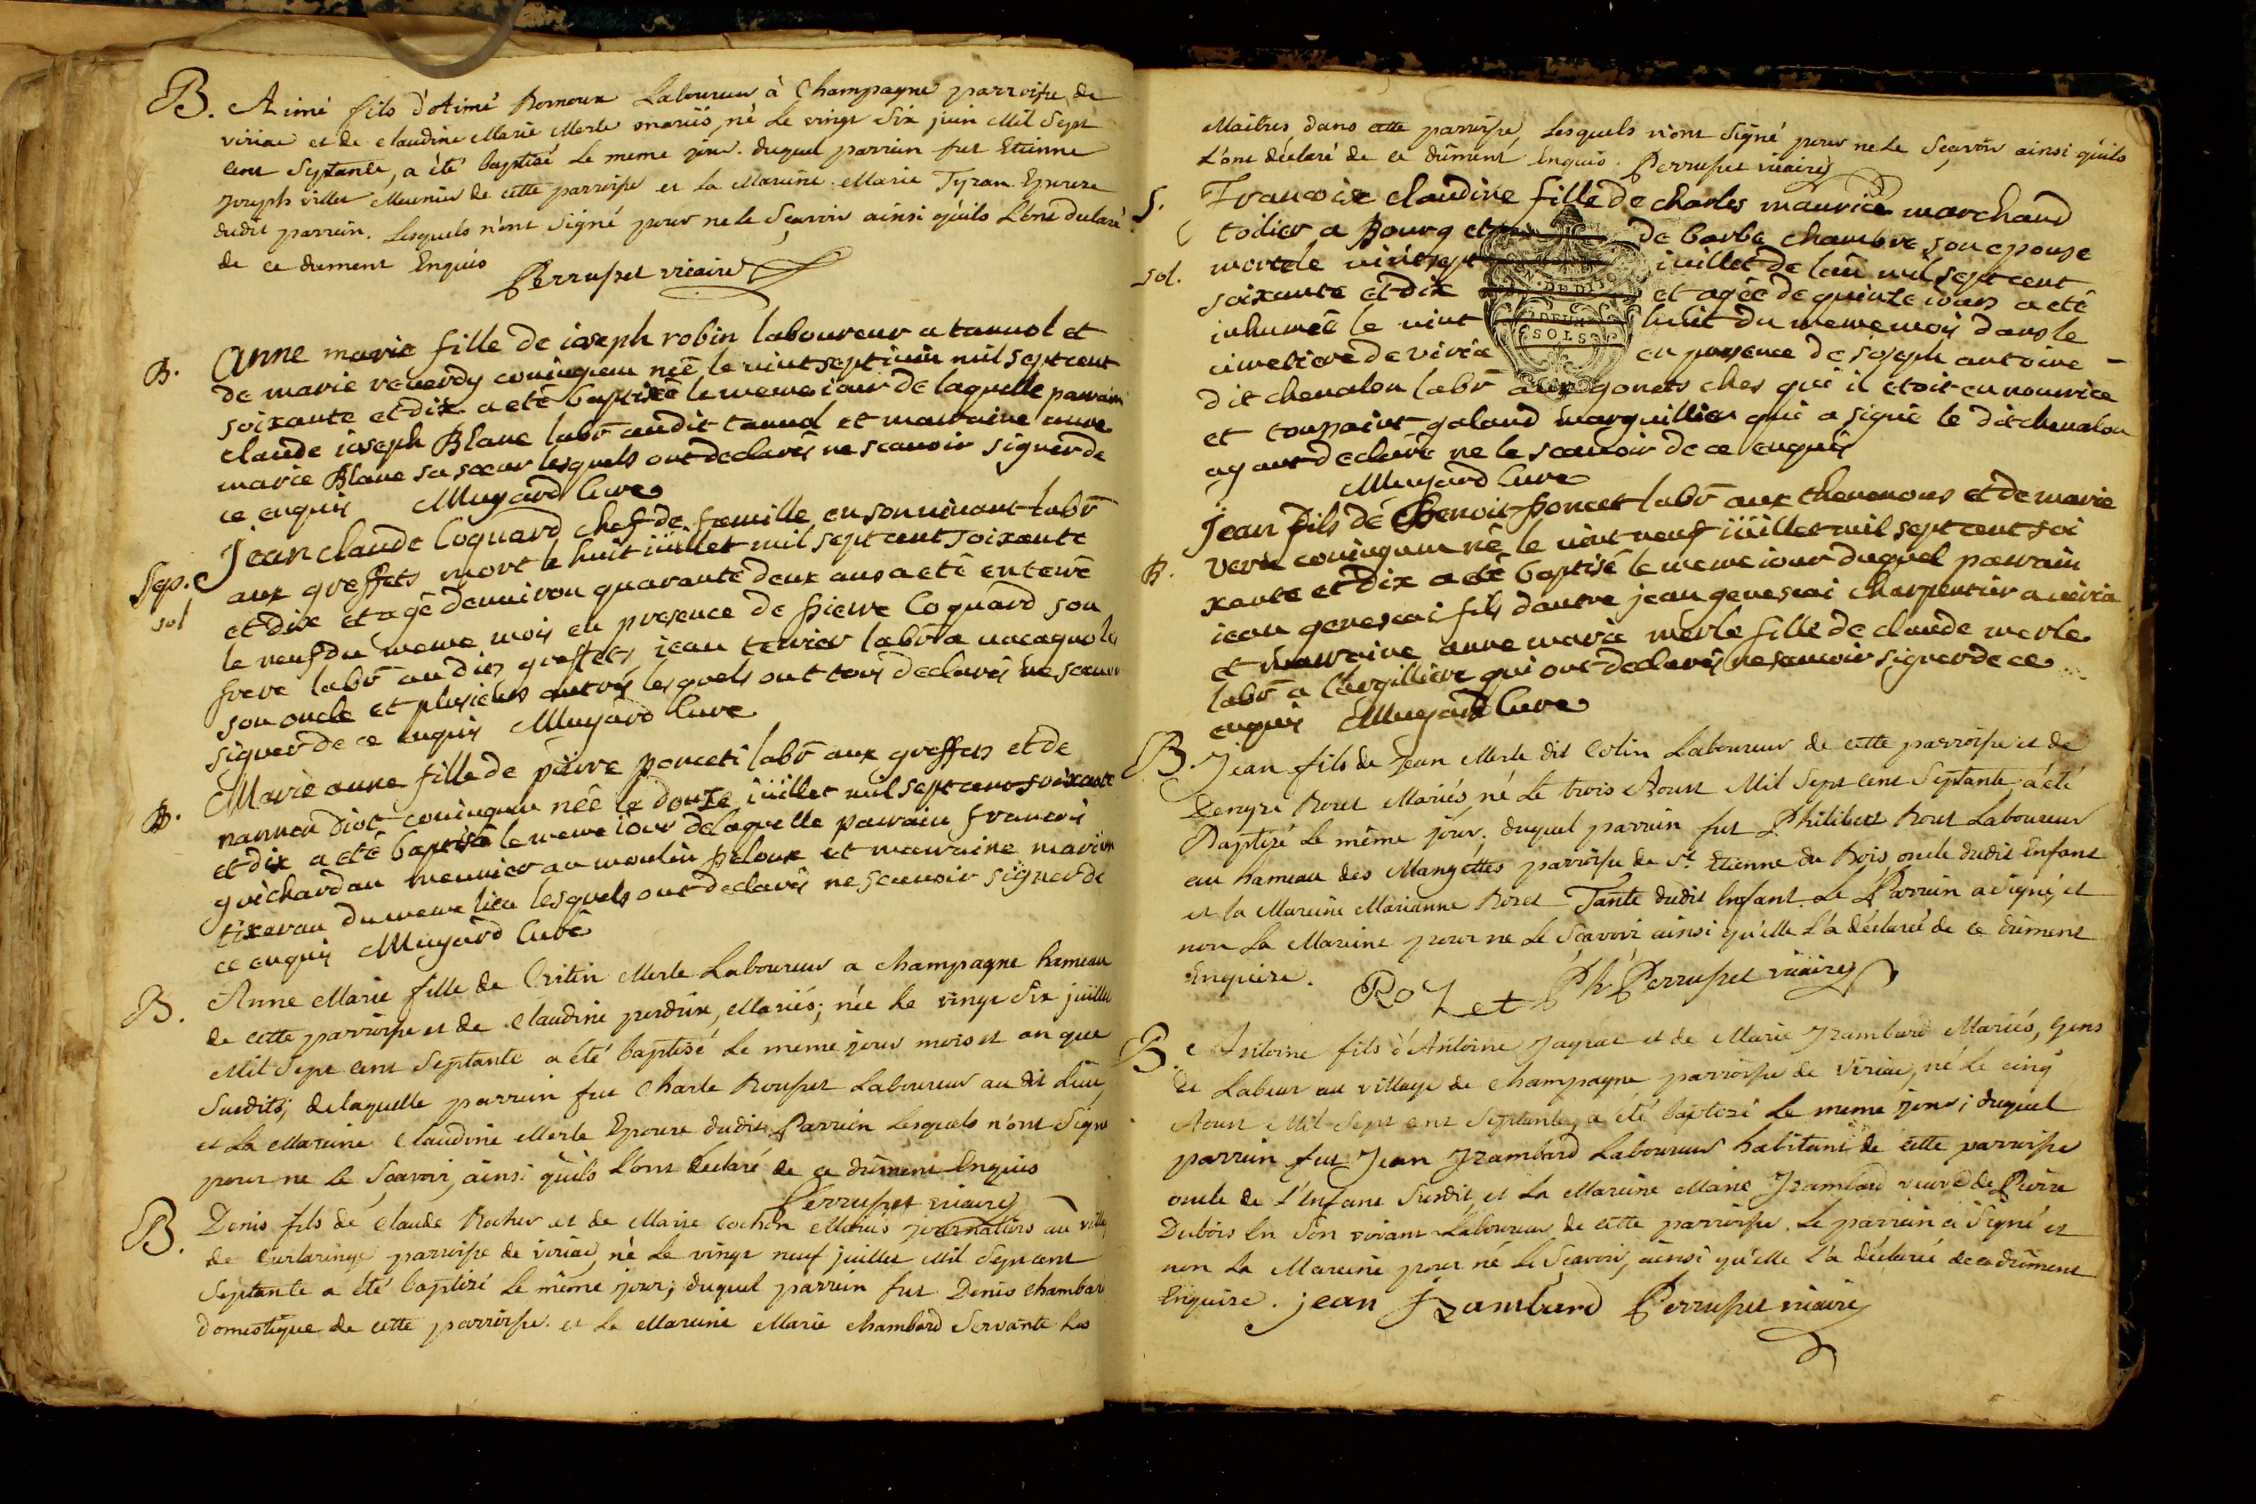 B. Aimé fils d'Aimé Romour Laboureur à Champagne parroisse de
viriac et de Claudine Marie Merle mariés, né Le vingt Six juin Mil Sept
Cent Septante, a été baptisé Le meme jour. duquel parrain fut Etienne
Joseph villet Meunier de cette parroisse et la Mareine Marie Tyran Epouse
dudit parrain. Lesquels n'ont signé pour ne le Sçavoir ainsi qu'ils L'ont declaré
de ce dument Enquis
Perruset vicaire
B. Anne marie fille de joseph robin laboureur a tannol et
de marie reverdy conïugum née le vint sept iuin mil sept cent
soixante et dix a eté baptisée le meme iour de laquelle parrain
claude ioseph Blanc labr̄ au dit tannol et marraine anne
marie Blanc sa soeur lesquels ont declarés ne scauoir signer de
ce enquis Mugard Cure
Sep. Jean claude Coquard chef de famille en son uiuant labr̄
sol aux greffets mort le huit iüillet mil sept cent soixante
et dix et agé denuiron quarante deux ans a eté enterré
le neuf du meme mois en presence de pierre Coquard son
frere labr̄ au dis greffets jean terrier labr̄ a
son oncle et plusieurs autres lesquels ont tous declarés ne scauoir
signer de ce enquis Mugard Cure
B. Marie anne fille de pierre poncet labr̄ aux greffets et de
nannon diot coniugum née le douze iüillet mil sept cent soixante
et dix a eté baptisée le meme iour de laquelle parrain francois
guichard au meunier au moulin peloux et marraine marie
tixeran du meme lieu lesquels ont declarés ne scauoir signer de
ce enquis Mugard Curé
B. Anne Marie fille de Cristin Merle Laboureur a Champagne hameau
de cette parroisse et de Claudine perdrix, Mariés; née Le vingt Six juillet
Mil Sept cent Septante a été baptisé Le meme jour mois et an que
Susdits; delaquelle parrein fut Charle Rousset Laboureur au dit Lieu
et La Mareine Claudine Merle Epouse dudit Parrein Lesquels n'ont Signé
pour ne Le Sçavoir, ainsi qu'ils L'ont declaré de ce dûment Enquis
Perruset vicaire
B. Denis fils de Claude Rocher et de Marie Cochon Mariés journaliers au village
de Curtaringe parroisse de viriac, né Le vingt neuf juillet Mil Sept cent
Septante a été baptizé Le même jour; duquel parrein fut Denis Chambard
domestique de cette parroisse et La Mareine Marie Chambard Servante Les
Maitres dans cette parroisse, Lesquels n'ont Signé pour ne Le Sçavoir ainsi qu'ils
L'ont déclaré de ce dûment Enquis. Perruset vicaire
S. Francoise claudine fille de charles maurice marchand
toilier a Bourg et de barbe chambre son epouse
sol. morte le vint sept iuillet de lan mil sept cent
soixante et dix et agée de quinze iours a eté
inhumée le vint huit du meme mois dans le
cimetiere de viria en presence de joseph antoine
dit chevalon labr̄ aux gonets ches qui il etoit en nourrice
et toussaint galand marguillier qui a signé le dit chevalon
ayant declaré ne le scauoir de ce enquis
Mugard Cure
B. Jean fils de Benoit poncet labr̄ aux thevenons et de marie
verie coniugum né le vint neuf iüillet mil sept cent soi
xante et dix a eté baptisé le meme iour duquel parrain
jean genescai fils dautre jean genescai charpentier a viria
et marraine anne marie merle fille de claude merle
labr̄ a largilliere qui ont declarés ne scauoir signer de ce
enquis Mugard Cure
B. Jean fils de Jean Merle dit Colin Laboureur de cette parroisse et de
Denyse Rozet Mariés, né Le trois Aoust Mil Sept Cent Septante, a été
Baptizé Le même jour; duquel parrain fut Philibert Rozet Laboureur
au hameau des Mangettes parroisse de St Etienne du Bois oncle dudit Enfant
et la Mareine Marianne Rozet Tante dudit Enfant. Le Parrein a signé, et
non La Mareine pour ne Le Sçavoir ainsi qu'elle L'a déclaré de ce dûment
Enquise. Ph. Rozet Perruset vicaire
B. Antoine fils d'Antoine Jayat et de Marie Jzambard Mariés, Gens
de Labeur au village de Champagne parroisse de Viriac, né Le cinq
Aoust Mil Sept cent Septante, a été baptizé Le meme jour; duquel
parrein fut Jean Jzambard Laboureur habitant de cette parroisse
oncle de L'Enfant Susdit, et La Mareine Marie Jzambard veuve de Pierre
Dubois En Son vivant Laboureur de cette parroisse. Le parrain a Signé et
non La Mareine pour ne Le Sçavoir, ainsi qu'elle L'a déclaré de ce dûment
Enquise. jean Jzambard Perruset vicaire